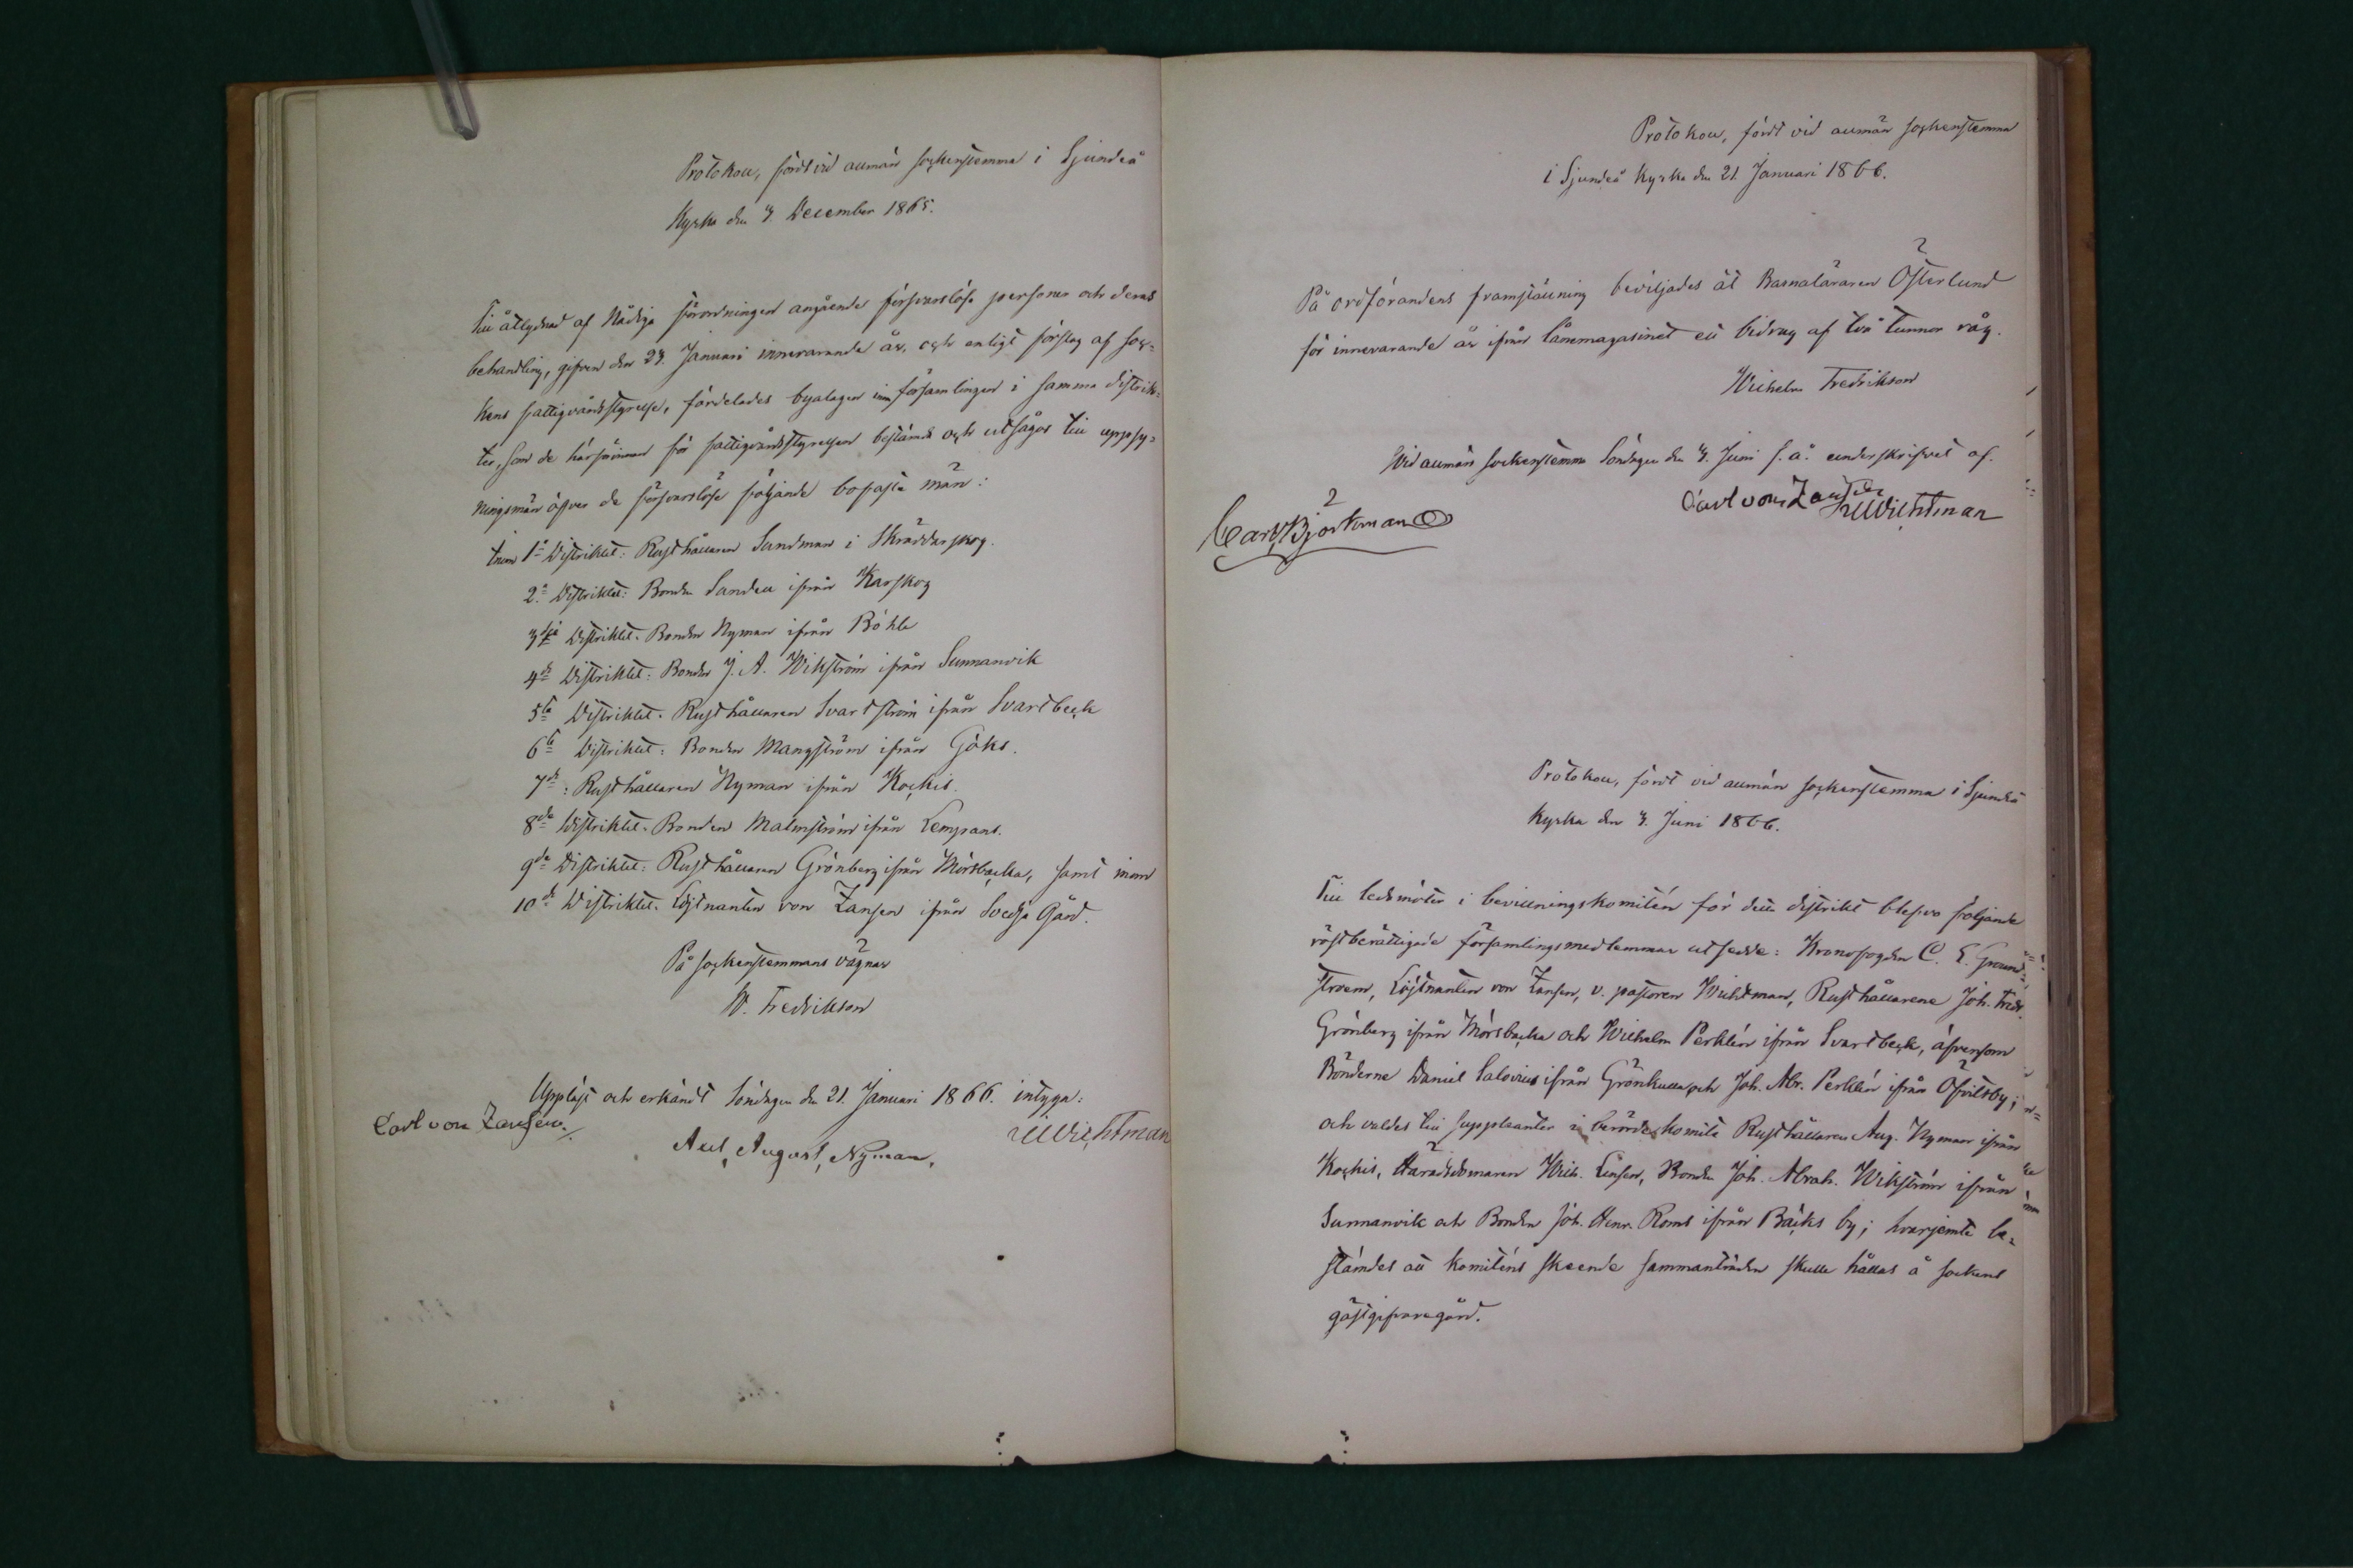 Protokoll, fördt vid allmän sockenstemma i Sjundeå
Kyrka den 3. December 1865.
Till åtlydnad af Nådiga förordningen angående försvarslösa personer och deras
behandling, gifven den 23. Januari innevarande år, och enligt förslag af soc=
kens fattigvårdsstyrelse, fördelades byalagen inom församlingen i samma distrik=
ter, som de härförinnan för fattigvårdsstyrelsen bestämda och utsågos till uppsy=
ningsmän öfver de försvarslöse följande bofaste män:
Inom 1a Distriktet: Rusthållaren Sandman i Skräddarskog.
2a Distriktet: Bonden Sandell ifrån Karskog
3dje Distriktet. Bonden Nyman ifrån Böhle
4de Distriktet: Bonden J. A. Wikström ifrån Sunnanvik
5te Distriktet. Rusthållaren Svartström ifrån Svartbeck
6te Distriktet: Bonden Mangström ifrån Göks.
7de: Rusthållaren Nyman ifrån Kockis.
8de Distriktet. Bonden Malmström ifrån Lempans.
9de Distriktet: Rusthållaren Grönberg ifrån Mörsbacka, samt inom
10de Distriktet. Löjtnanten von Zansen ifrån Svedja Gård.
På sockenstemmans vägnar
W. Fredrikson
Uppläst och erkändt Söndagen den 21. Januari 1866. intyga:
Carl von Zansen.
August, Nyman,
Wichtman
Protokoll, fördt vid allmän sockenstemma
i Sjundeå Kyrka den 21. Januari 1866.
På ordförandens framställning beviljades åt Barnaläraren Österlund
för innevarande år ifrån lånemagasinet ett bidrag af två tunnor råg.
Wilhelm Fredrikson
Vid allmän sockenstemma Söndagen den 3. Juni s. å. underskrifvet af.
Carl von Zansen
Wichtman
Carl Björkman
Protokoll, fördt vid allmän sockenstemma i Sjundeå
Kyrka den 3. Juni 1866.
Till ledamöter i bevillningskomitén för detta distrikt blefvo följande
röstberättigade församlingsmedlemmar utsedde: Kronofogden C. E. Grund=
stroem, Löjtnanten von Zansen, v. pastoren Wichtman, Rusthållarene Joh. Fredr.
Grönberg ifrån Mörsbacka och Wilhelm Perklén ifrån Svartbeck, äfvensom
Bönderne Daniel Salovius ifrån Grönkulla och Joh. Abr. Perklén ifrån Öfvitsby;
och valdes till suppleanter i berörde komité Rusthållaren Aug. Nyman ifrån
Kockis, Häradsdomaren Wilh. Lensen, Bonden Joh. Abrah. Wikström ifrån
Sunnanvik och Bonden Joh. Henr. Roms ifrån Bäcks by; hvarjemte be=
stämdes att komiténs skeende sammanträden skulle hållas å sockens
gästgifvaregård.